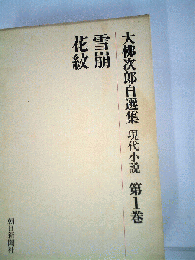 大佛次郎自選集 現代小説 第1巻
雪崩
花紋
朝日新聞社